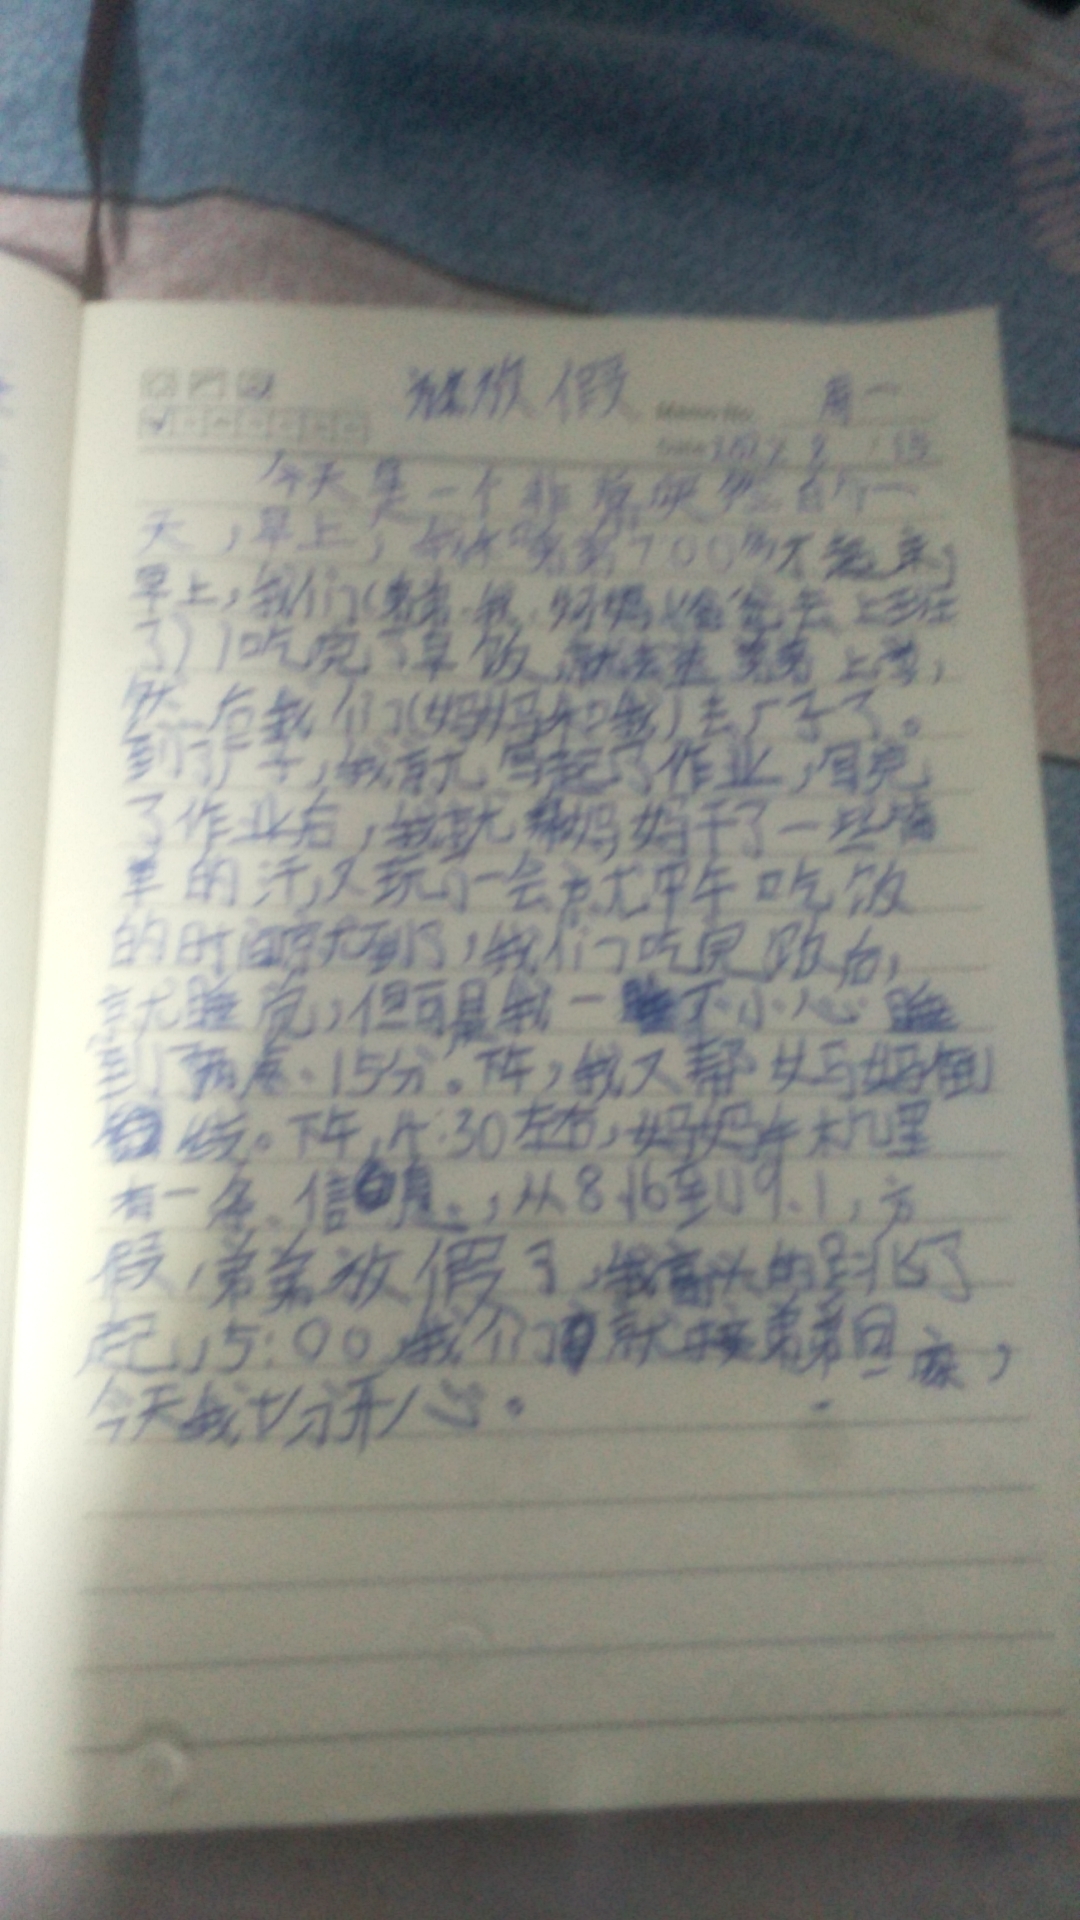 放假 周一
今天是一个非常 的一
天,早上,我和弟弟7:00多才起来,
早上,我们(弟弟、我、妈妈,爸爸去上班
了)吃完了早饭,就去送弟弟上学,
然后我们(妈妈和我)去厂子了。
到了厂子,我就写起了作业,写完
了作业后,我就帮妈妈干了一些简
单的活,又玩了一会,就中午吃饭
的时间就到了,我们吃完饭后,
就睡觉,但可是我一不小心睡
到了两点15分。下午,我又帮妈妈
线。下午,4:30左右,妈妈手机里
有一条信息,从8.16到9.1,方
假,弟弟放假了,我高兴的 了
起,5:00我们就接弟弟回家,
今天我十分开心。